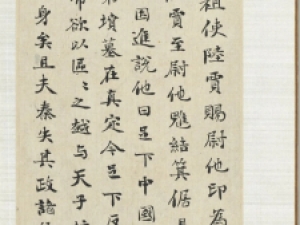 祖使陸賈賜尉他印為
賈至尉他魋結箕倨
因進說他曰足下中國
墳墓在真定今足下反
欲以區〻之越与天子
身矣且夫秦失其政諸